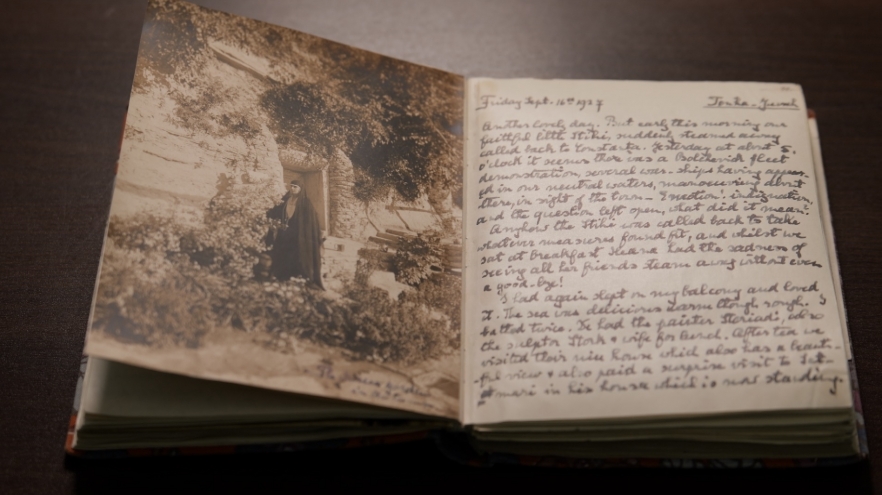 Friday Sept. 16th 1927
Tenha-Juvah
Another lovely day. But early this morning our
faithful little Stihi, suddenly steamed away
called back to Constanta. Yesterday at about 5.
o'clock it seems there was a Bolshevick fleet
demonstration, several war-ships having appear-
ed in our neutral waters, manoeuvring about
there, in sight of the town - Emotion! indignation,
and the question left open, what did it mean.
Anyhow the Stihi was called back to take
whatever measures found fit, and whilst we
sat at breakfast Ileana had the sadness of
seeing all her friends steam away without even
a good-bye!
I had again slept on my balcony and loved
it. The sea was delicious warm though rough. I
bathed twice. We had the painter Steriadi, also
the sculptor Stork & wife for lunch. After tea we
visited their nice house which also has a beauti-
ful view & also paid a surprise visit to
in his house which is now standing.
in